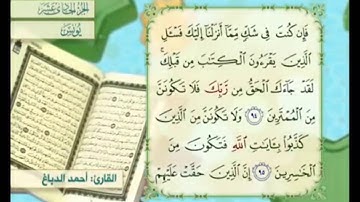 الجزء الحادي عشر
يونس
فَإِن كُنتَ فِى شَكٍّ مِّمَّآ أَنزَلْنَآ إِلَيْكَ فَسْـَٔلِ
ٱلَّذِينَ يَقْرَءُونَ ٱلْكِتَـٰبَ مِن قَبْلِكَ ۚ
لَقَدْ جَآءَكَ ٱلْحَقُّ مِن رَّبِّكَ فَلَا تَكُونَنَّ
مِنَ ٱلْمُمْتَرِينَ ٩٤ وَلَا تَكُونَنَّ مِنَ ٱلَّذِينَ
كَذَّبُوا۟ بِـَٔايَـٰتِ ٱللَّهِ فَتَكُونَ مِنَ
ٱلْخَـٰسِرِينَ ٩٥ إِنَّ ٱلَّذِينَ حَقَّتْ عَلَيْهِمْ
القارئ: أحمد الدباغ